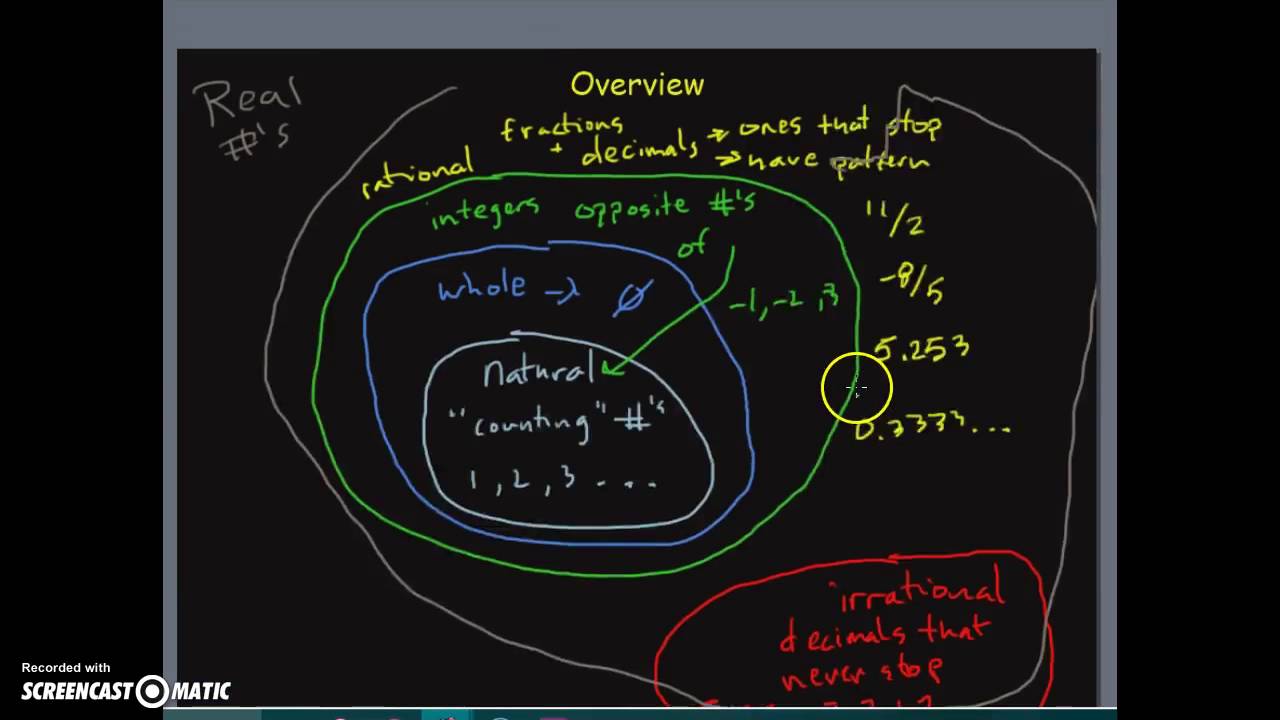 Overview
Real
#'s
fractions
+ decimals → ones that stop
→ have pattern
rational
integers opposite #'s
of
whole → 0
-1, -2, 3
natural
"counting" #'s
1, 2, 3 ....
11/2
-8/5
5.253
0.3333...
irrational
decimals that
never stop
Recorded with
SCREENCAST O MATIC